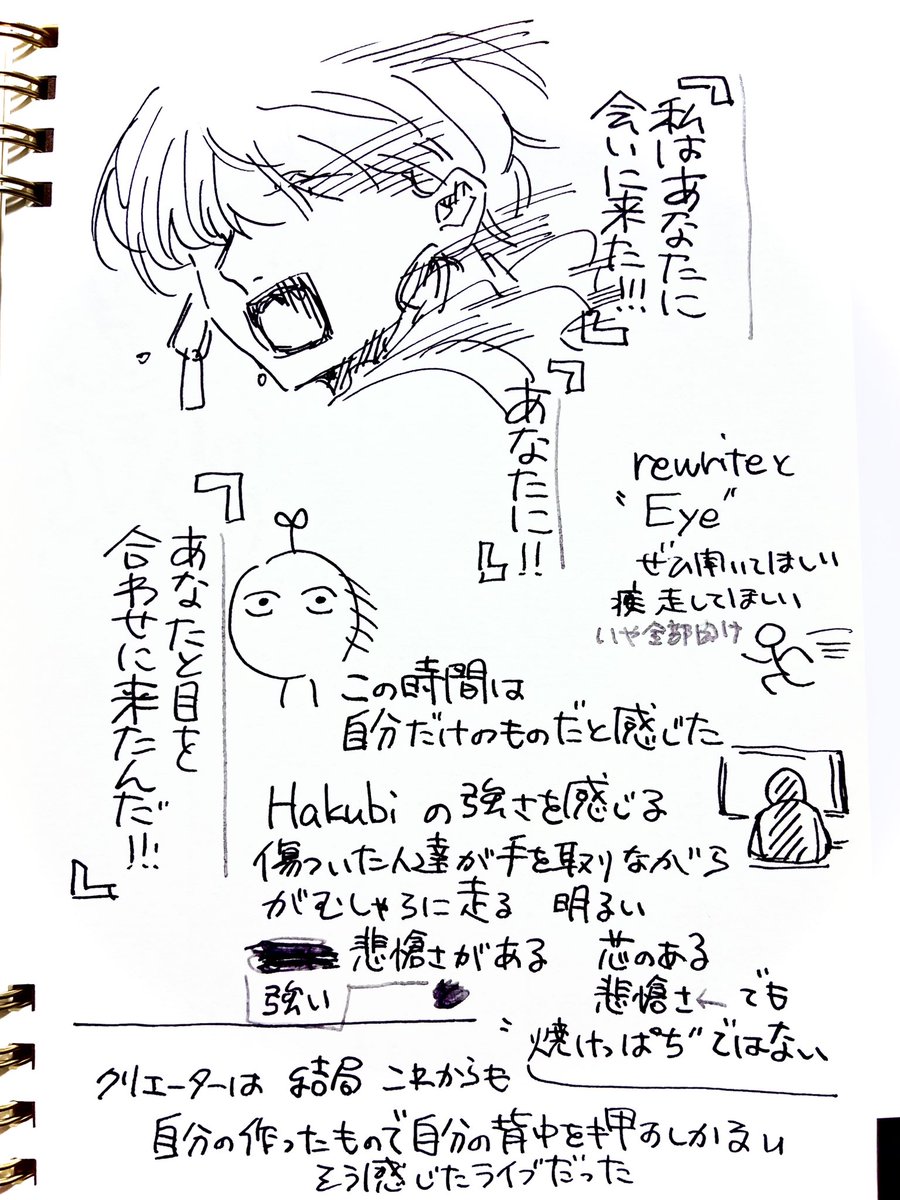 『私はあなたに
会いに来た!!!』
『あなたに!!』
rewriteと
"Eye"
ぜひ聞いてほしい
疾走してほしい
いや全部聞け
『あなたと目を
合わせに来たんだ!!!』
この時間は
自分だけのものだと感じた
Hakubiの強さを感じる
傷ついた人達が手を取りながら
がむしゃらに走る 明るい
強い
悲愴さがある
芯のある
悲愴さ←でも
"焼けっぱち"ではない
クリエーターは 結局 これからも
自分の作ったもので自分の背中を押すしかない
そう感じたライブだった